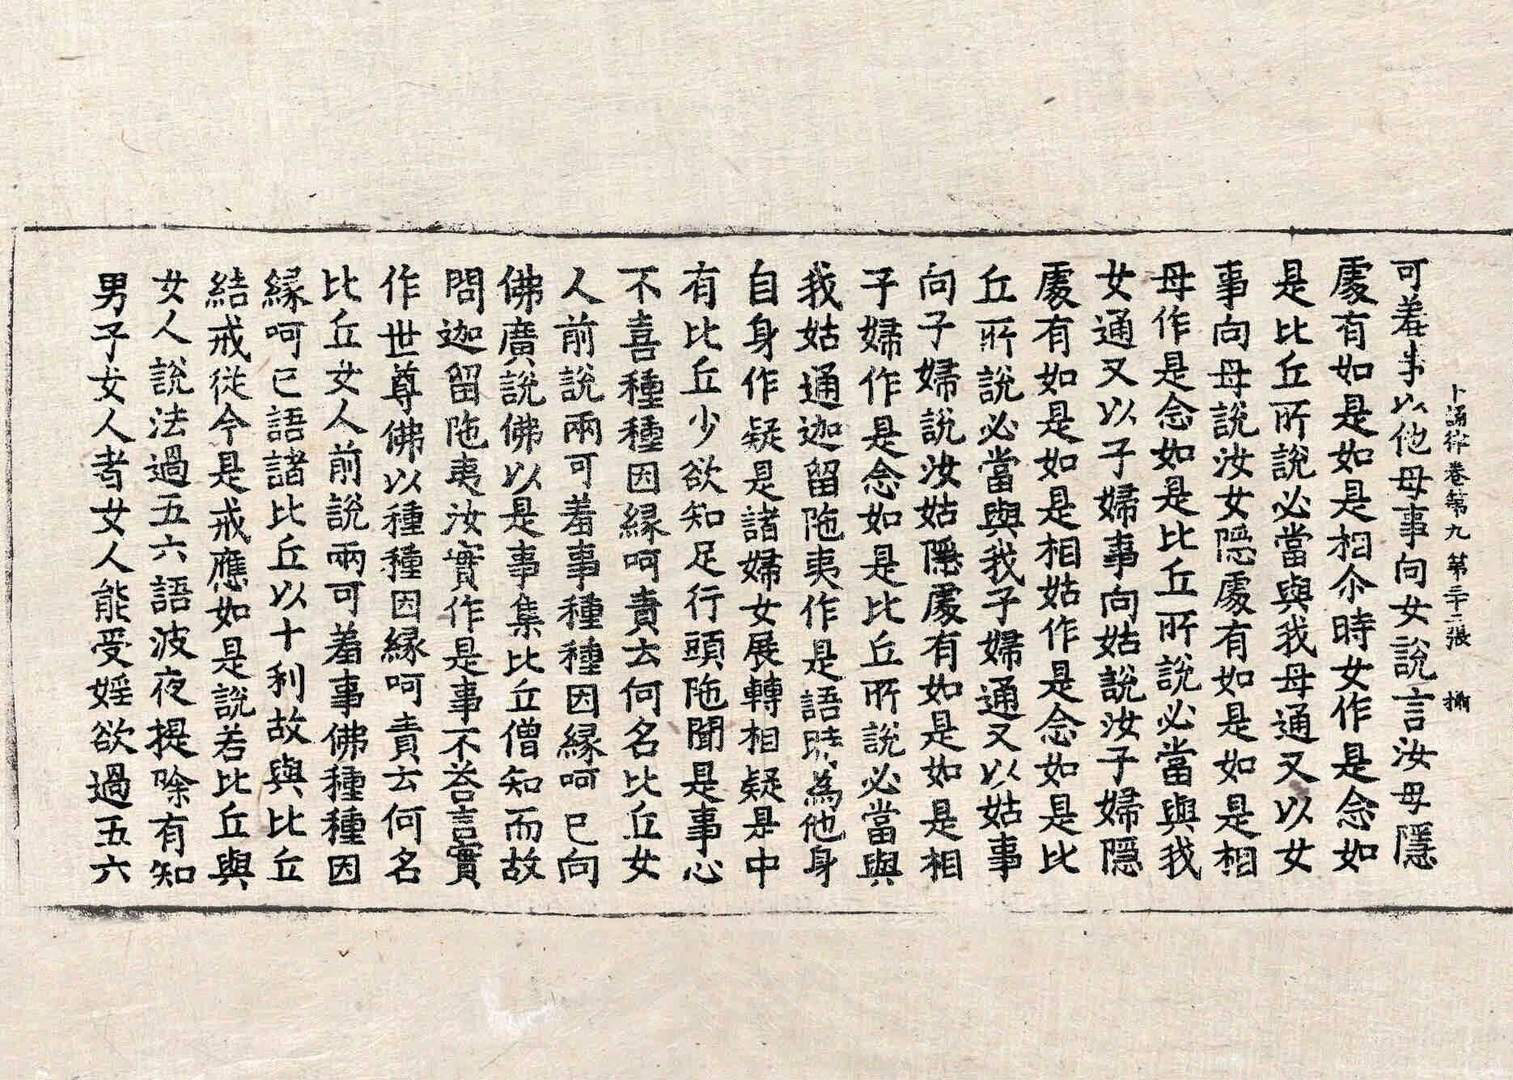 可羞事以他母事向女說言汝母隱
十誦律卷第九 第三十二張 㩇
處有如是如是相尒時女作是念如
是比丘所說必當與我母通又以女
事向母說汝女隱處有如是如是相
母作是念如是比丘所說必當與我
女通又以子婦事向姑說汝子婦隱
處有如是如是相姑作是念如是比
丘所說必當與我子婦通又以姑事
向子婦說汝姑隱處有如是如是相
子婦作是念如是比丘所說必當與
我姑通迦留陁夷作是語時為他身
自身作疑是諸婦女展轉相疑是中
有比丘少欲知足行頭陁聞是事心
不喜種種因緣呵責云何名比丘女
人前說兩可羞事種種因緣呵已向
佛廣說佛以是事集比丘僧知而故
問迦留陁夷汝實作是事不荅言實
作世尊佛以種種因緣呵責云何名
比丘女人前說兩可羞事佛種種因
緣呵已語諸比丘以十利故與比丘
結戒從今是戒應如是說若比丘與
女人說法過五六語波夜提除有知
男子女人者女人能受婬欲過五六